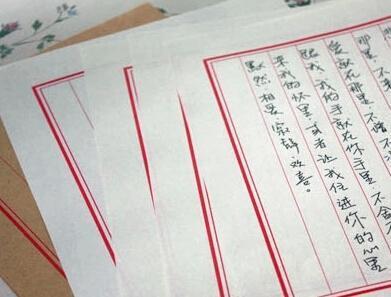 那里、不
爱就在那里、不增不
跟我、我的手就在你手里、不舍
来我的怀里、或者让我住进你的心里
默然相爱寂静欢喜。